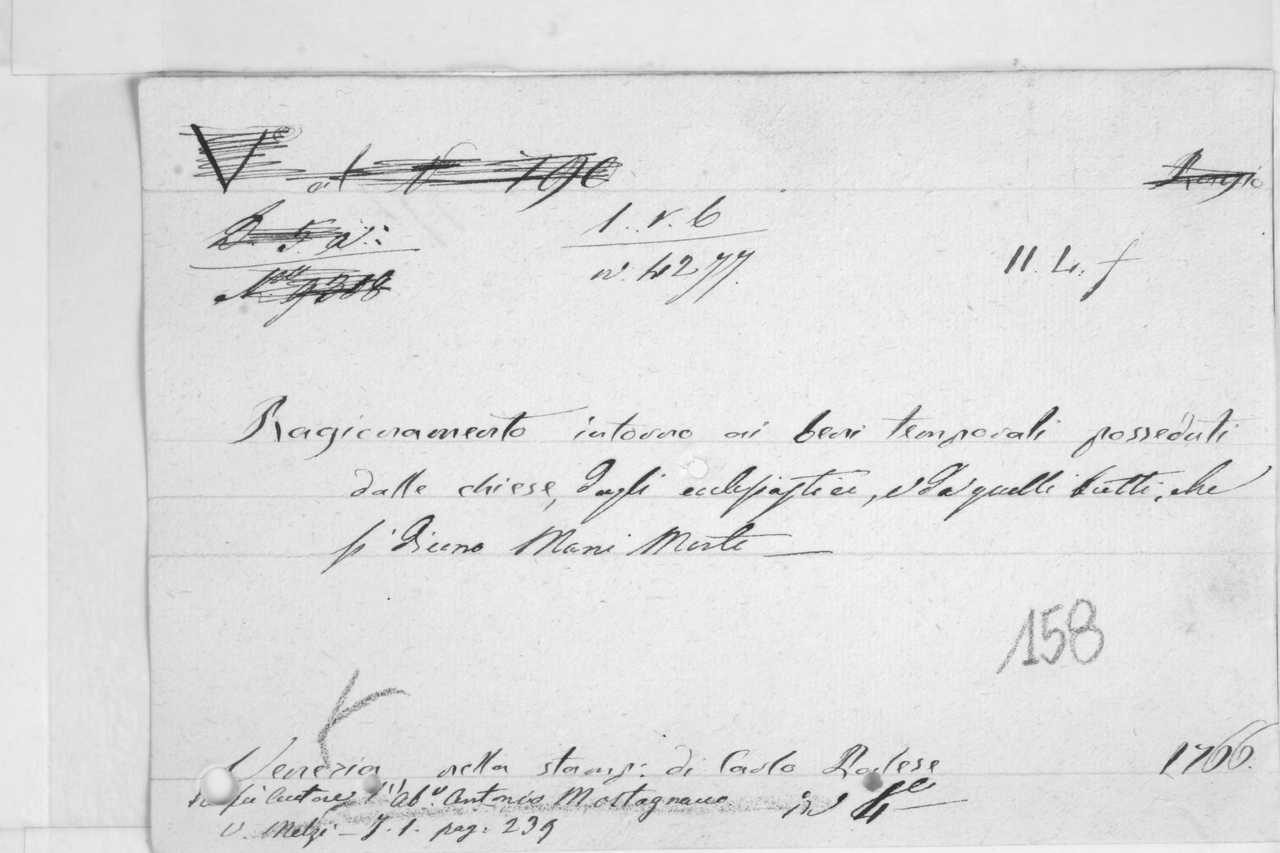 1. r. 6
n. 4277.
11. 4. f
Ragionamento intorno ai beni temporali posseduti
dalle chiese, dagli ecclesiastici, e da quelli tutti, che
si dicono Mani Morte
158
Venezia nella stamp: di Carlo Palese 1766.
fù Autore l' Ab. Antonio Montagnacco in 4
V. Melzi - T. 1. pag: 239